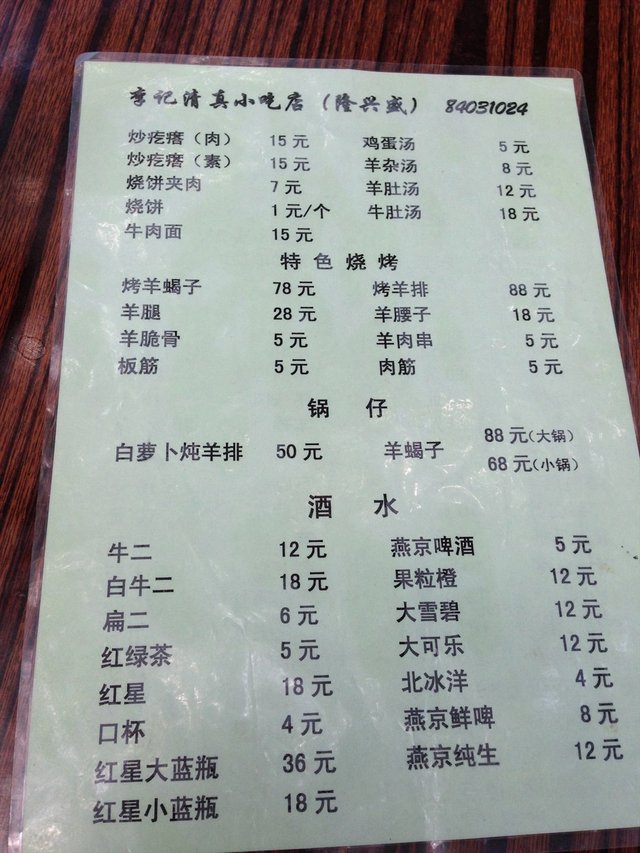 李记清真小吃店（隆兴盛） 84031024
炒疙瘩（肉） 15 元 鸡蛋汤 5 元
炒疙瘩（素） 15 元 羊杂汤 8 元
烧饼夹肉 7 元 羊肚汤 12 元
烧饼 1 元/个 牛肚汤 18 元
牛肉面 15 元
特色烧烤
烤羊蝎子 78 元 烤羊排 88 元
羊腿 28 元 羊腰子 18 元
羊脆骨 5 元 羊肉串 5 元
板筋 5 元 肉筋 5 元
锅仔
白萝卜炖羊排 50 元 羊蝎子 88 元(大锅)
68 元(小锅)
酒水
牛二 12 元 燕京啤酒 5 元
白牛二 18 元 果粒橙 12 元
扁二 6 元 大雪碧 12 元
红绿茶 5 元 大可乐 12 元
红星 18 元 北冰洋 4 元
口杯 4 元 燕京鲜啤 8 元
红星大蓝瓶 36 元 燕京纯生 12 元
红星小蓝瓶 18 元